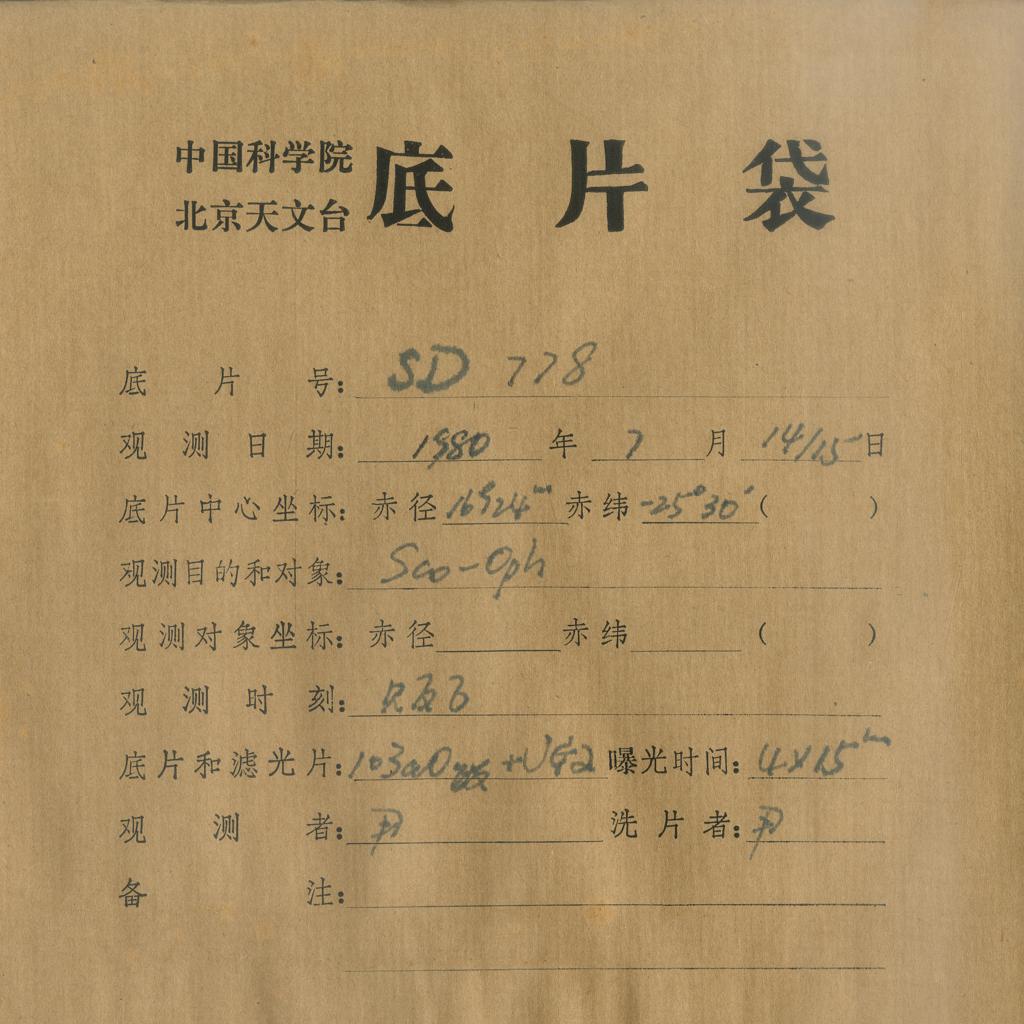 中国科学院
北京天文台
底片袋
底片号: SD 778
观测日期: 1980 年 7 月 14/15 日
底片中心坐标: 赤径 16h24m 赤纬 -25°30′ ( )
观测目的和对象: Sco-Oph
观测时刻:
底片和滤光片: 103aO +UG2 曝光时间: 4×15m
观测者: 尹 洗片者: 尹
观测对象坐标: 赤径 赤纬 ( )
备注: